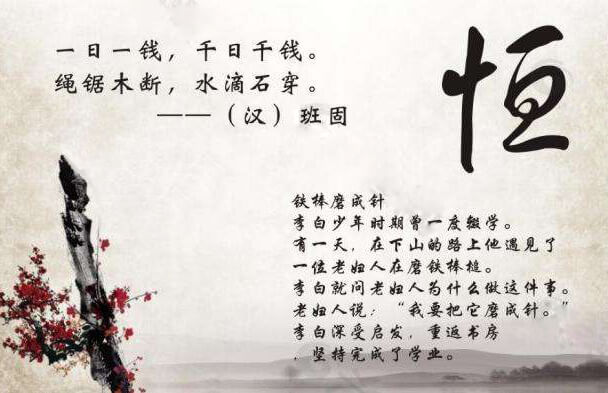 一日一钱，千日千钱。
绳锯木断，水滴石穿。
——（汉）班固
恒
铁棒磨成针
李白少年时期曾一度辍学。
有一天，在下山的路上他遇见了
一位老妇人在磨铁棒槌。
李白就问老妇人为什么做这件事。
老妇人说：“我要把它磨成针。”
李白深受启发，重返书房
．坚持完成了学业。